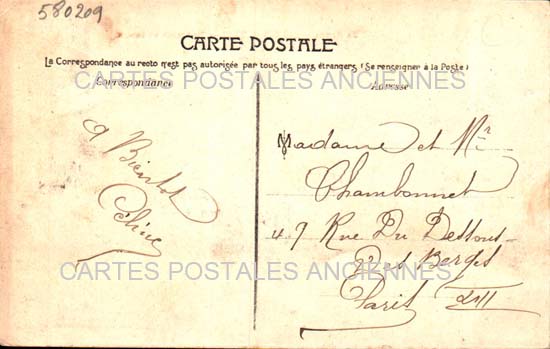 580209
CARTE POSTALE
La Correspondance au recto n'est pas autorisée par tous les pays étrangers (Se renseigner à la Poste)
CARTES POSTALES ANCIENNES
Correspondance
Adresse
A Bientot
Céline
Madame et Mr
Chambonnet
47 Rue Du Dessous
Des Berges
CARTES POSTALES ANCIENNES
Paris XIII